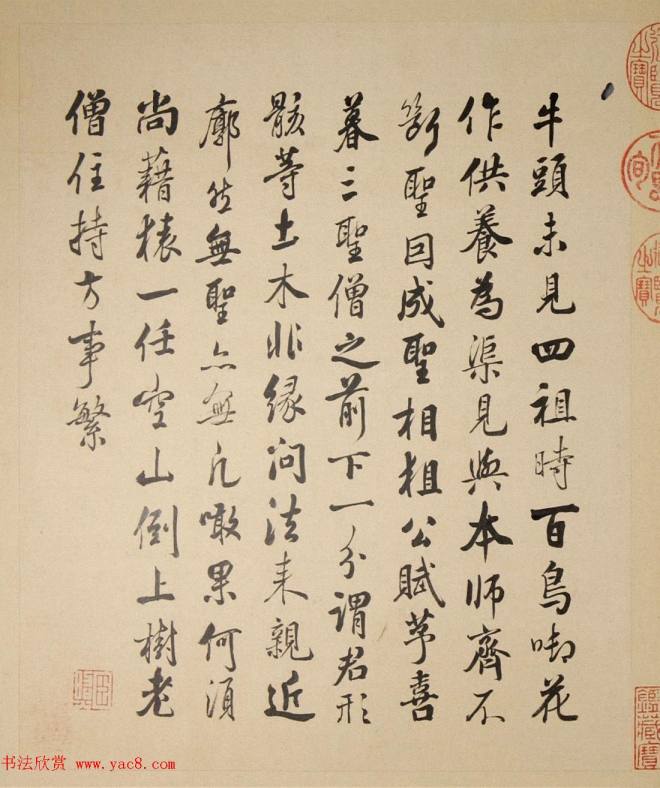 牛頭未見四祖時百鳥啣花
作供養為渠見與本師齊不
斵聖因成聖相粗公賦芧喜
暮三聖僧之前下一分謂君形
骸等土木非緣問法來親近
廓然無聖亦無凡噉果何須
尚藉榇一任空山倒上樹老
僧住持方事繁
書法欣赏 www.yac8.com